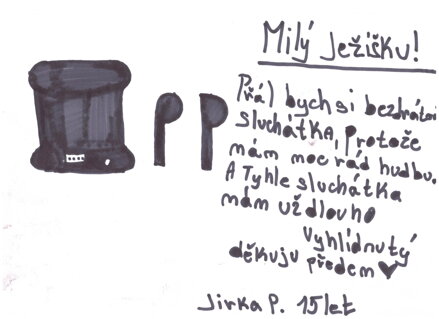 Milý Ježíšku!
Přál bych si bezdrátoi
sluchátka, protože
mám moc rád hudbu.
A Tyhle sluchátka
mám už dlouho
vyhlídnutý
děkuju předem ♥
Jirka P. 15 let